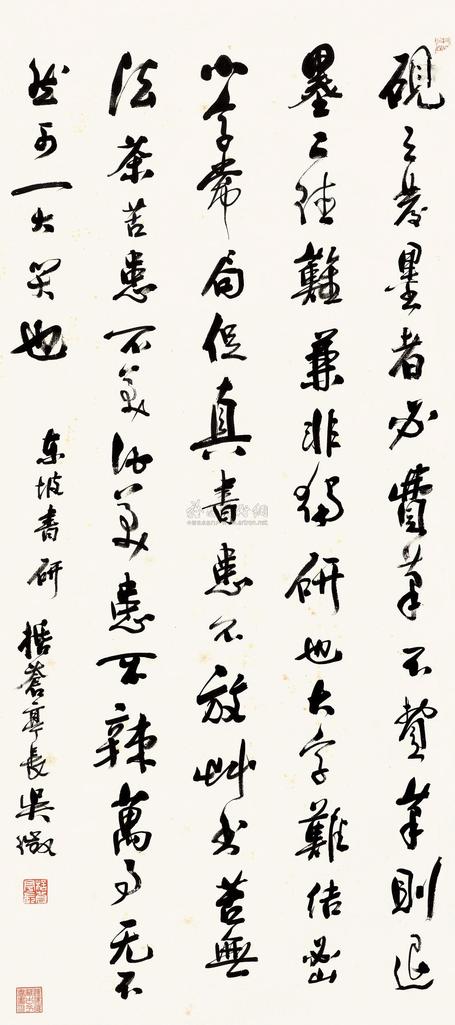 硯之發墨者必費筆不費筆則退
墨二德難兼非獨研也大字難結密
小字常局促真書患不放艸書苦無
法茶苦患不美酒美患不辣萬事无不
然可一大笑也
東坡書研 栝蒼亭長吳徵